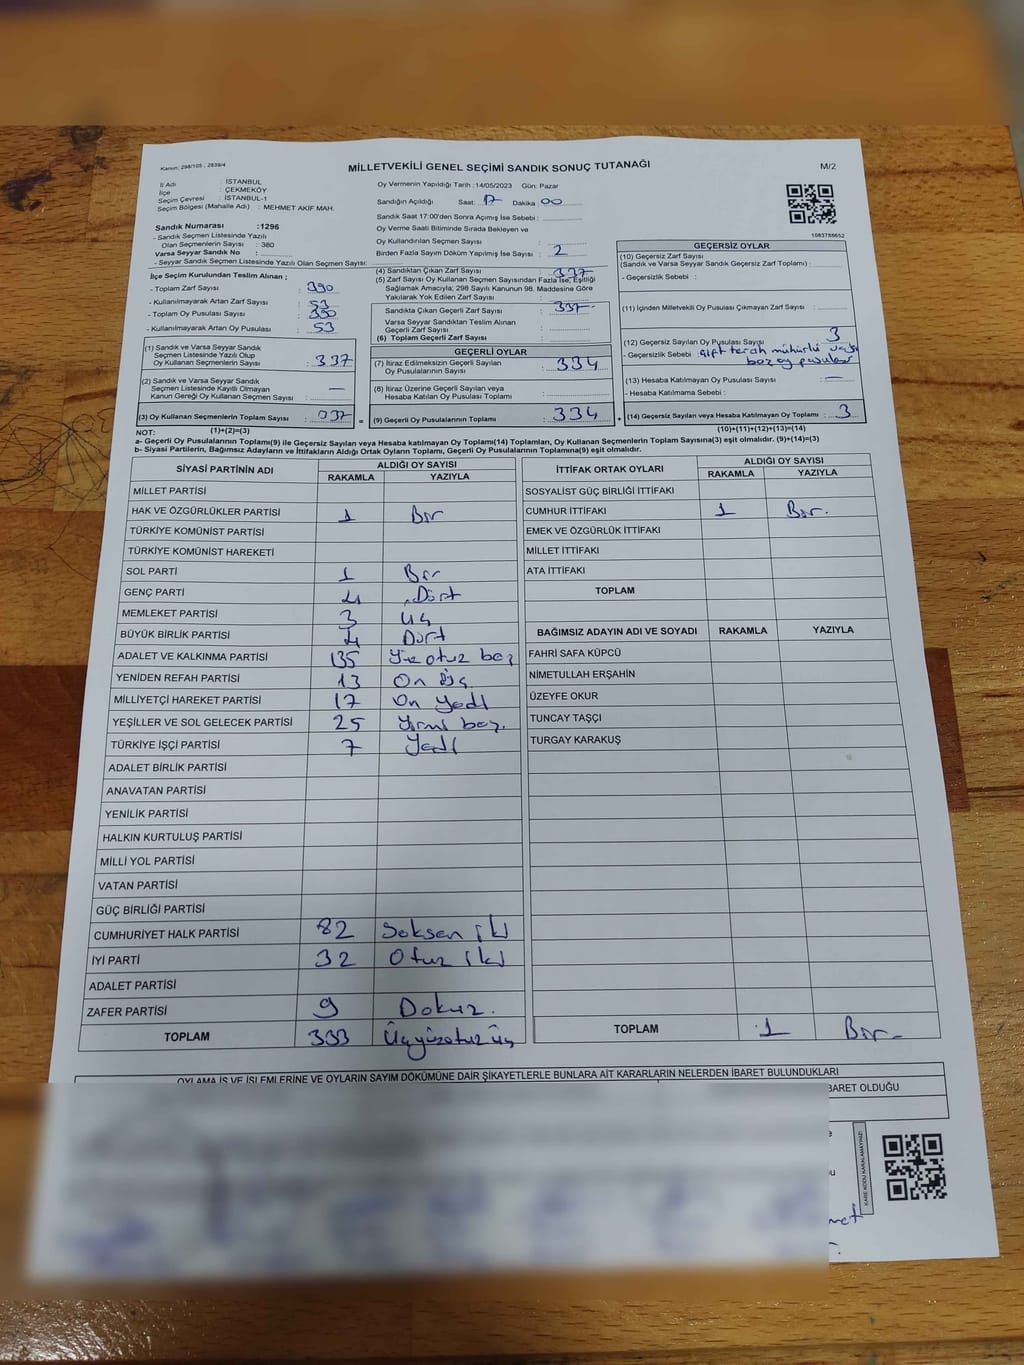 Kanun: 298/105 , 2839/4
MİLLETVEKİLİ GENEL SEÇİMİ SANDIK SONUÇ TUTANAĞI
M/2
İl Adı : İSTANBUL
İlçe : ÇEKMEKÖY
Seçim Çevresi : İSTANBUL-1
Seçim Bölgesi (Mahalle Adı) : MEHMET AKİF MAH.
Sandık Numarası :1296
- Sandık Seçmen Listesinde Yazılı
Olan Seçmenlerin Sayısı : 380
Varsa Seyyar Sandık No :
- Seyyar Sandık Seçmen Listesinde Yazılı Olan Seçmen Sayısı:
Oy Vermenin Yapıldığı Tarih : 14/05/2023 Gün: Pazar
Sandığın Açıldığı Saat: 17 Dakika 00
Sandık Saat 17:00'den Sonra Açılmış İse Sebebi :
Oy Verme Saati Bitiminde Sırada Bekleyen ve
Oy Kullandırılan Seçmen Sayısı :
Birden Fazla Sayım Döküm Yapılmış İse Sayısı : 2
1083788652
İlçe Seçim Kurulundan Teslim Alınan ;
- Toplam Zarf Sayısı : 390
- Kullanılmayarak Artan Zarf Sayısı : 53
- Toplam Oy Pusulası Sayısı : 390
- Kullanılmayarak Artan Oy Pusulası : 53
(1) Sandık ve Varsa Seyyar Sandık
Seçmen Listesinde Yazılı Olup
Oy Kullanan Seçmenlerin Sayısı : 337
(2) Sandık ve Varsa Seyyar Sandık
Seçmen Listesinde Kayıtlı Olmayan
Kanun Gereği Oy Kullanan Seçmen Sayısı : —
(3) Oy Kullanan Seçmenlerin Toplam Sayısı : 337
(1)+(2)=(3)
(4) Sandıktan Çıkan Zarf Sayısı : 337
(5) Zarf Sayısı Oy Kullanan Seçmen Sayısından Fazla İse, Eşitliği
Sağlamak Amacıyla; 298 Sayılı Kanunun 98. Maddesine Göre
Yakılarak Yok Edilen Zarf Sayısı :
Sandıkta Çıkan Geçerli Zarf Sayısı : 337
Varsa Seyyar Sandıktan Teslim Alınan
Geçerli Zarf Sayısı :
(6) Toplam Geçerli Zarf Sayısı :
GEÇERLİ OYLAR
(7) İtiraz Edilmeksizin Geçerli Sayılan
Oy Pusulalarının Sayısı : 334
(8) İtiraz Üzerine Geçerli Sayılan veya
Hesaba Katılan Oy Pusulası Toplamı :
= (9) Geçerli Oy Pusulalarının Toplamı : 334
GEÇERSİZ OYLAR
(10) Geçersiz Zarf Sayısı
(Sandık ve Varsa Seyyar Sandık Geçersiz Zarf Toplamı) :
- Geçersizlik Sebebi :
(11) İçinden Milletvekili Oy Pusulası Çıkmayan Zarf Sayısı :
(12) Geçersiz Sayılan Oy Pusulası Sayısı : 3
- Geçersizlik Sebebi : çift tercih mühürlü
boş oy pusulası
(13) Hesaba Katılmayan Oy Pusulası Sayısı : —
- Hesaba Katılmama Sebebi :
+ (14) Geçersiz Sayılan veya Hesaba Katılmayan Oy Toplamı : 3
(10)+(11)+(12)+(13)=(14)
NOT:
a- Geçerli Oy Pusulalarının Toplamı(9) ile Geçersiz Sayılan veya Hesaba katılmayan Oy Toplamı(14) Toplamları, Oy Kullanan Seçmenlerin Toplam Sayısına(3) eşit olmalıdır. (9)+(14)=(3)
b- Siyasi Partilerin, Bağımsız Adayların ve İttifakların Aldığı Ortak Oyların Toplamı, Geçerli Oy Pusulalarının Toplamına(9) eşit olmalıdır.
SİYASİ PARTİNİN ADI ALDIĞI OY SAYISI
RAKAMLA YAZIYLA
MİLLET PARTİSİ
HAK VE ÖZGÜRLÜKLER PARTİSİ 1 Bir
TÜRKİYE KOMÜNİST PARTİSİ
TÜRKİYE KOMÜNİST HAREKETİ
SOL PARTİ 1 Bir
GENÇ PARTİ 4 Dört
MEMLEKET PARTİSİ 3 Üç
BÜYÜK BİRLİK PARTİSİ 4 Dört
ADALET VE KALKINMA PARTİSİ 135 Yüz otuz beş
YENİDEN REFAH PARTİSİ 13 On üç
MİLLİYETÇİ HAREKET PARTİSİ 17 On Yedi
YEŞİLLER VE SOL GELECEK PARTİSİ 25 Yirmi beş.
TÜRKİYE İŞÇİ PARTİSİ 7 Yedi
ADALET BİRLİK PARTİSİ
ANAVATAN PARTİSİ
YENİLİK PARTİSİ
HALKIN KURTULUŞ PARTİSİ
MİLLİ YOL PARTİSİ
VATAN PARTİSİ
GÜÇ BİRLİĞİ PARTİSİ
CUMHURİYET HALK PARTİSİ 82 Seksen iki
İYİ PARTİ 32 Otuz iki
ADALET PARTİSİ
ZAFER PARTİSİ 9 Dokuz.
TOPLAM 333 Üçyüzotuz üç
İTTİFAK ORTAK OYLARI ALDIĞI OY SAYISI
RAKAMLA YAZIYLA
SOSYALİST GÜÇ BİRLİĞİ İTTİFAKI
CUMHUR İTTİFAKI 1 Bir.
EMEK VE ÖZGÜRLÜK İTTİFAKI
MİLLET İTTİFAKI
ATA İTTİFAKI
TOPLAM
BAĞIMSIZ ADAYIN ADI VE SOYADI RAKAMLA YAZIYLA
FAHRİ SAFA KÜPCÜ
NİMETULLAH ERŞAHİN
ÜZEYFE OKUR
TUNCAY TAŞÇI
TURGAY KARAKUŞ
TOPLAM 1 Bir
OYLAMA İŞ VE İŞLEMLERİNE VE OYLARIN SAYIM DÖKÜMÜNE DAİR ŞİKAYETLERLE BUNLARA AİT KARARLARIN NELERDEN İBARET BULUNDUKLARI
BARET OLDUĞU
KARE KODU KARALAMAYINIZ!